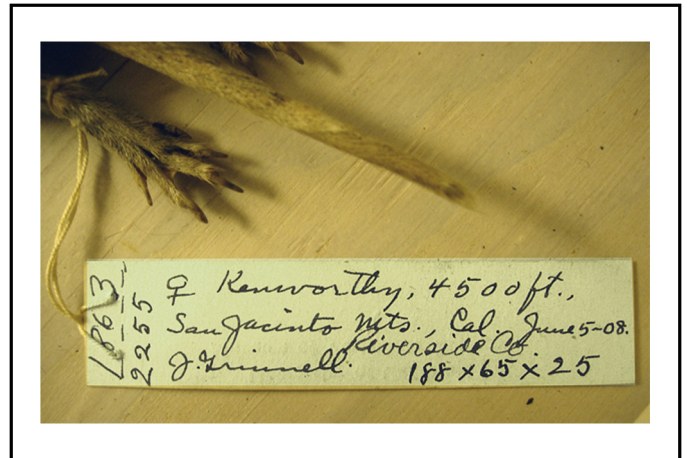 1863
2255
♀ Kenworthy, 4500ft.,
San Jacinto Mts., Cal. June 5-08.
Riverside Co.
J. Grinnell. 188 x 65 x 25